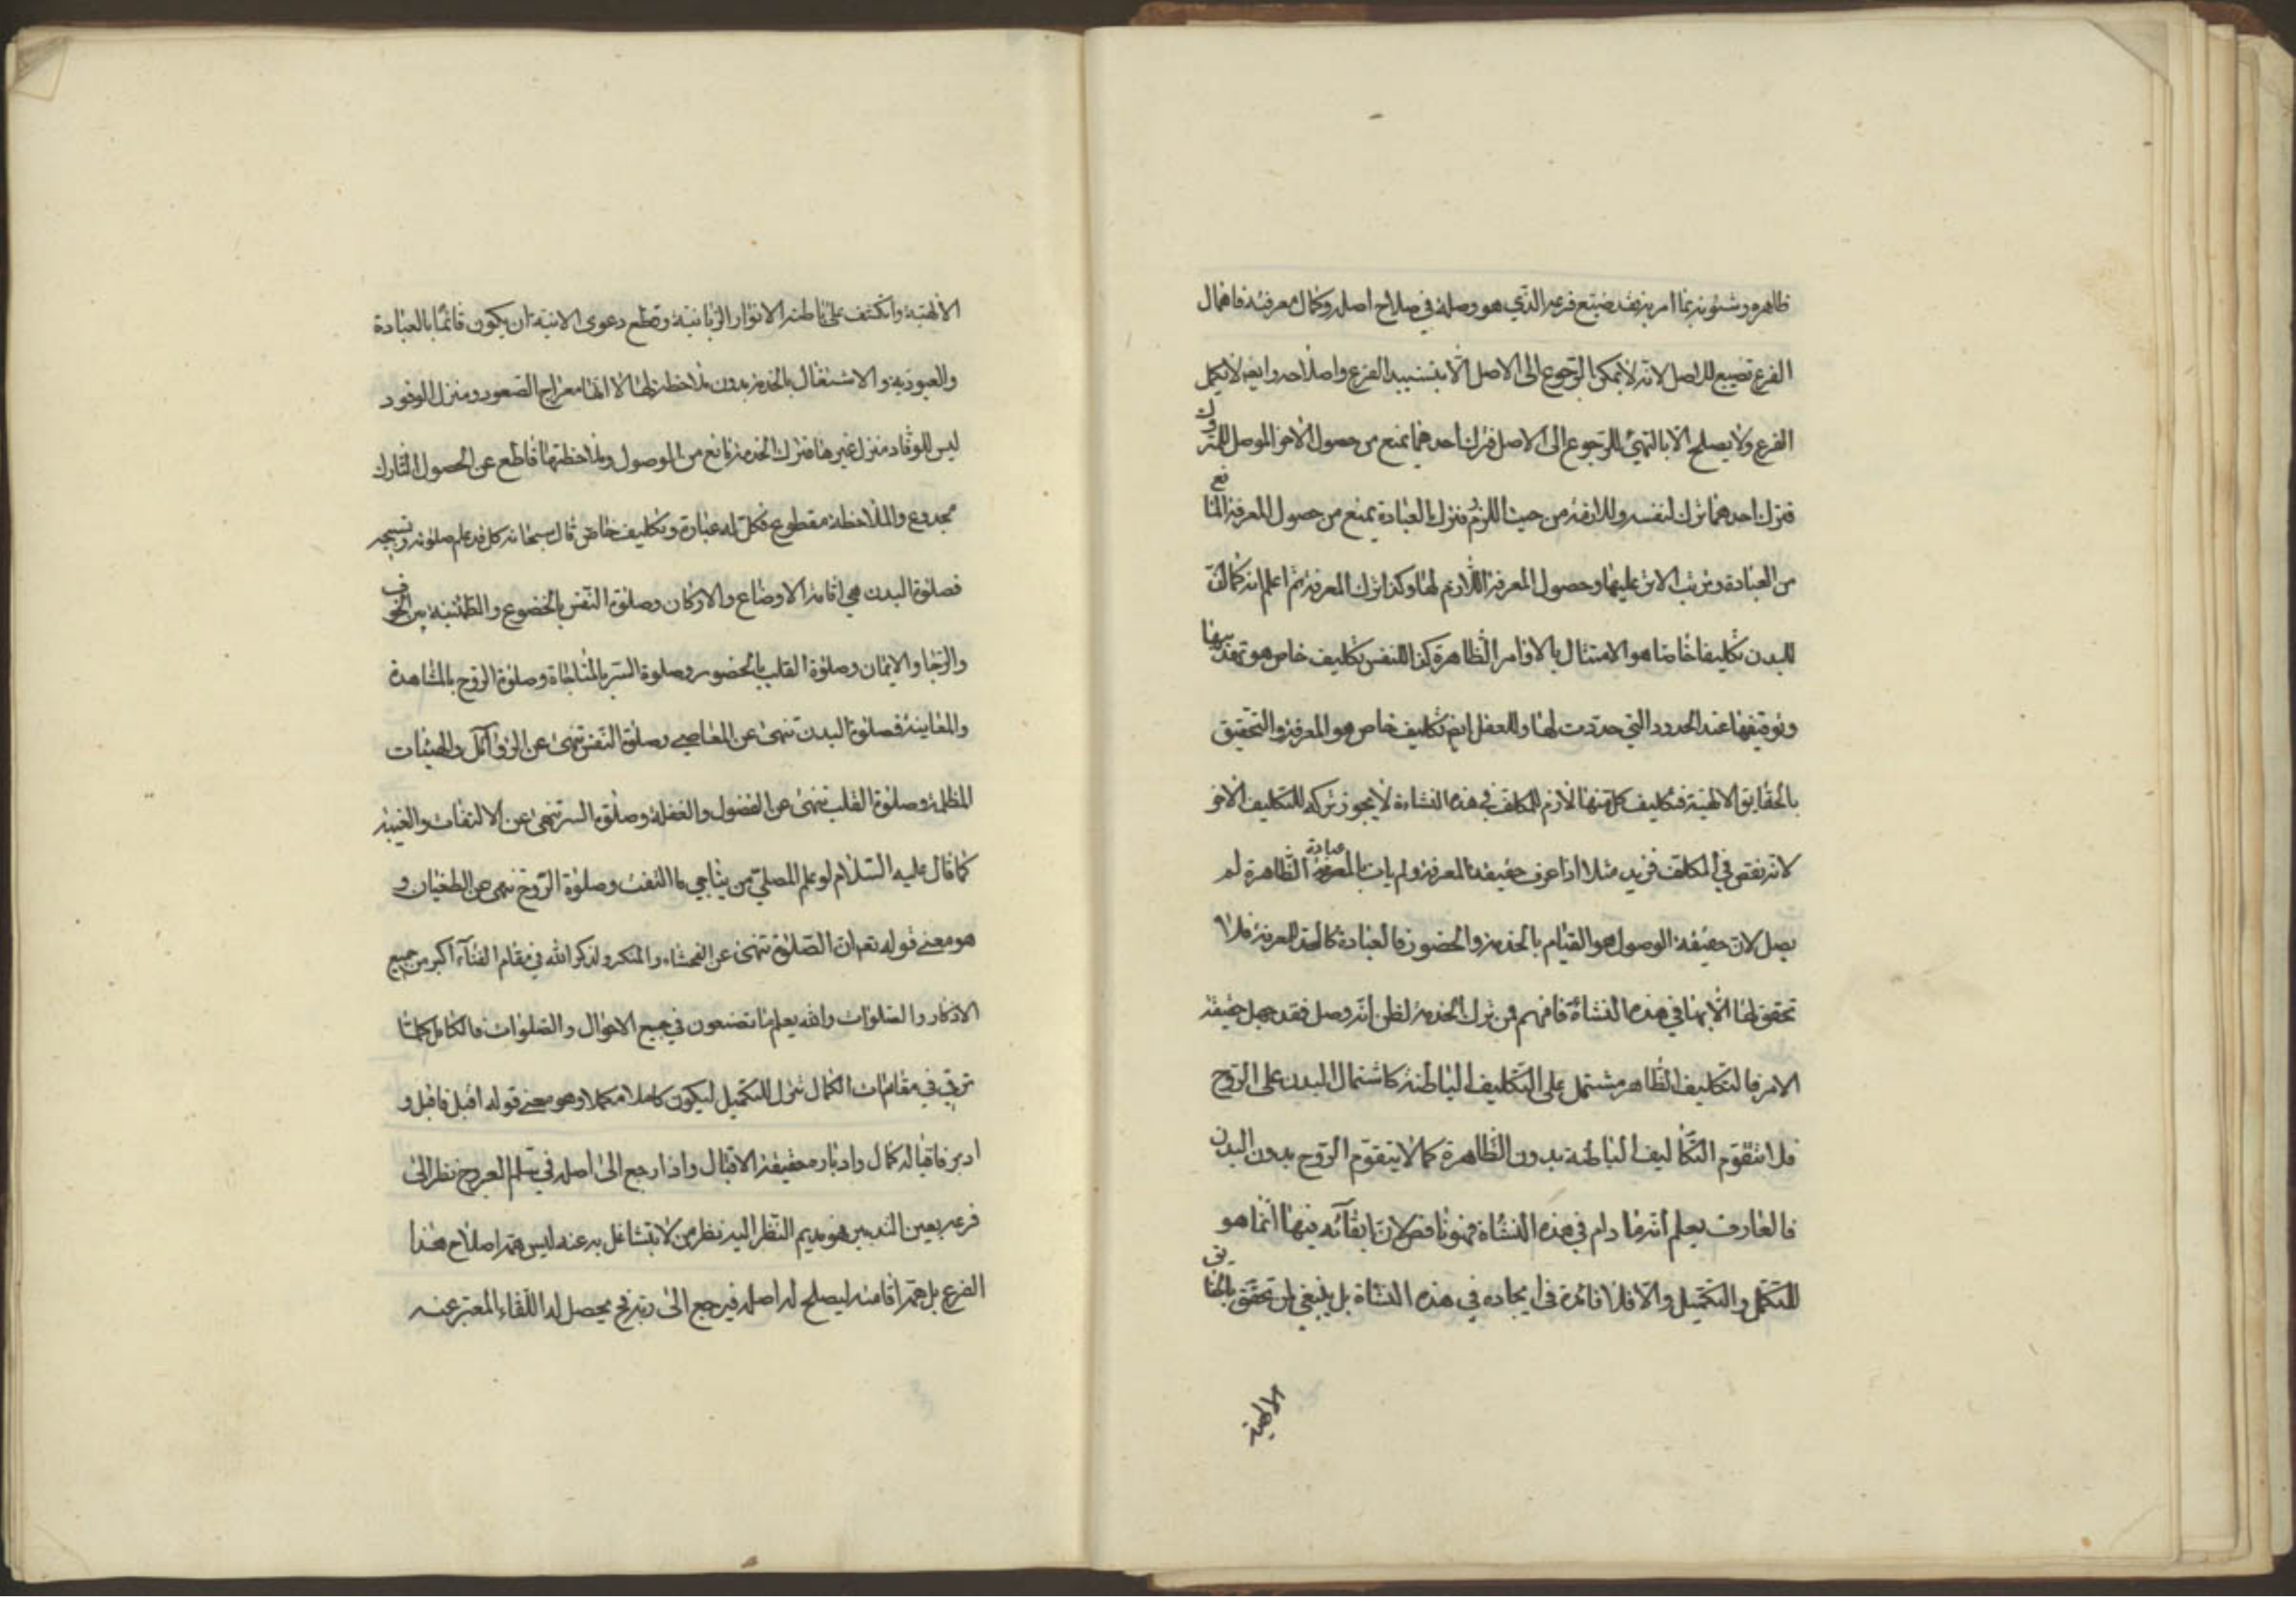 ظاهره وشئونه بما امر به فقد ضيّع فرعه الذي هو وصلة في صلاح اصله وكمال معرفته فاهمال
الفرع تضييع للاصل لانه لا يمكن الرجوع الى الاصل الا بتسبيب الفرع واصلاحه وايضا لا يكمل
الفرع ولا يصلح الا بالتهيئ للرجوع الى الاصل فترك احدهما يمنع من حصول الاخر الموصل للمتروك
فترك احدهما ترك لنفسه وللازمه من حيث اللزوم فترك العبادة يمنع من حصول المعرفة المانع
من العبادة وترتب الاثر عليها وحصول المعرفة اللازم لها وكذا ترك المعرفة ثم اعلم انه كما انّ
للبدن تكليفا خاصا هو الامتثال بالاوامر الظاهرة كذا للنفس تكليف خاص هو تهذيبها
وتوقيفها عند الحدود التي حددت لها وللعقل ايضا تكليف خاص هو المعرفة والتحقيق
بالحقايق الالهية فتكليف كل منها لازم للمكلف في هذه النشاءة لا يجوز تركه للتكليف الاخر
لانه نقص في المكلف فزيد مثلا اذا عرف حقيقة المعرفة ولم يات بالعبادة الظاهرة لم
يصل لان حقيقة الوصول هو القيام بالخدمة والحضور فالعبادة كالحد للمعرفة فلا
تحقق لها الا بها في هذه النشاة فافهم فمن ترك الخدمة لظن انه وصل فقد جهل حقيقة
الامر فالتكليف الظاهر مشتمل على التكليف الباطنة كاشتمال البدن على الروح
فلا تتقوم التكاليف الباطنة بدون الظاهرة كما لا يتقوم الروح بدون البدن
فالعارف يعلم انه ما دام في هذه النشاة فهو ناقص لان ابقآئه فيها انما هو
للتكمل والتكميل والا فلا فائدة في ايجاده في هذه النشاة بل ينبغي لمن تحقق بالحقايق
الالهية
الالهية وانكشف على باطنه الانوار الربانية وقطع دعوى الانية ان يكون قائما بالعبادة
والعبودية والاشتغال بالخدمة بدون ملاحظة لها الا انها معراج الصعود ومنزل الوفود
ليس للوفاد منزل غيرها فترك الخدمة مانع من الوصول وملاحظتها قاطع عن الحصول التارك
مجدوع والملاحظة مقطوع فكل له عبادة وتكليف خاص قال سبحانه كل قد علم صلوته وتسبيحه
فصلوة البدن هي اقامة الاوضاع والاركان وصلوة النفس بالخضوع والطمئنينة بين الخوف
والرجا والايمان وصلوة القلب بالحضور وصلوة السر بالمناجاة وصلوة الروح بالمشاهدة
والمعاينة فصلوة البدن تنهى عن المعاصي وصلوة النفس تنهى عن الرذآئل والهيئات
المظلمة وصلوة القلب تنهى عن الفضول والغفلة وصلوة السر تنهى عن الالتفات والغيبة
كما قال عليه السلام لو علم المصلي من يناجي ما التفت وصلوة الروح تنهى عن الطغيان و
هو معنى قوله تعالى ان الصلوة تنهى عن الفحشاء والمنكر ولذكر الله في مقام الفنآء اكبر من جميع
الاذكار والصلوات والله يعلم ما تصنعون في جميع الاحوال والصلوات فالكامل كلما
ترقى في مقامات الكمال تنزل للتكميل ليكون كاملا مكملا وهو معنى قوله اقبل فاقبل و
ادبر فاقباله كمال وادباره حقيقة الاقبال واذا رجع الى اصله في سلم العروج نظر الى
فرعه بعين التدبير فهو مديم النظر اليه نظر من لا يتشاغل به عنه ليس همه اصلاح هذا
الفرع بل همه اقامته ليصلح له اصله فيرجع الى ربه فح يحصل له اللقاء المعبر عنه